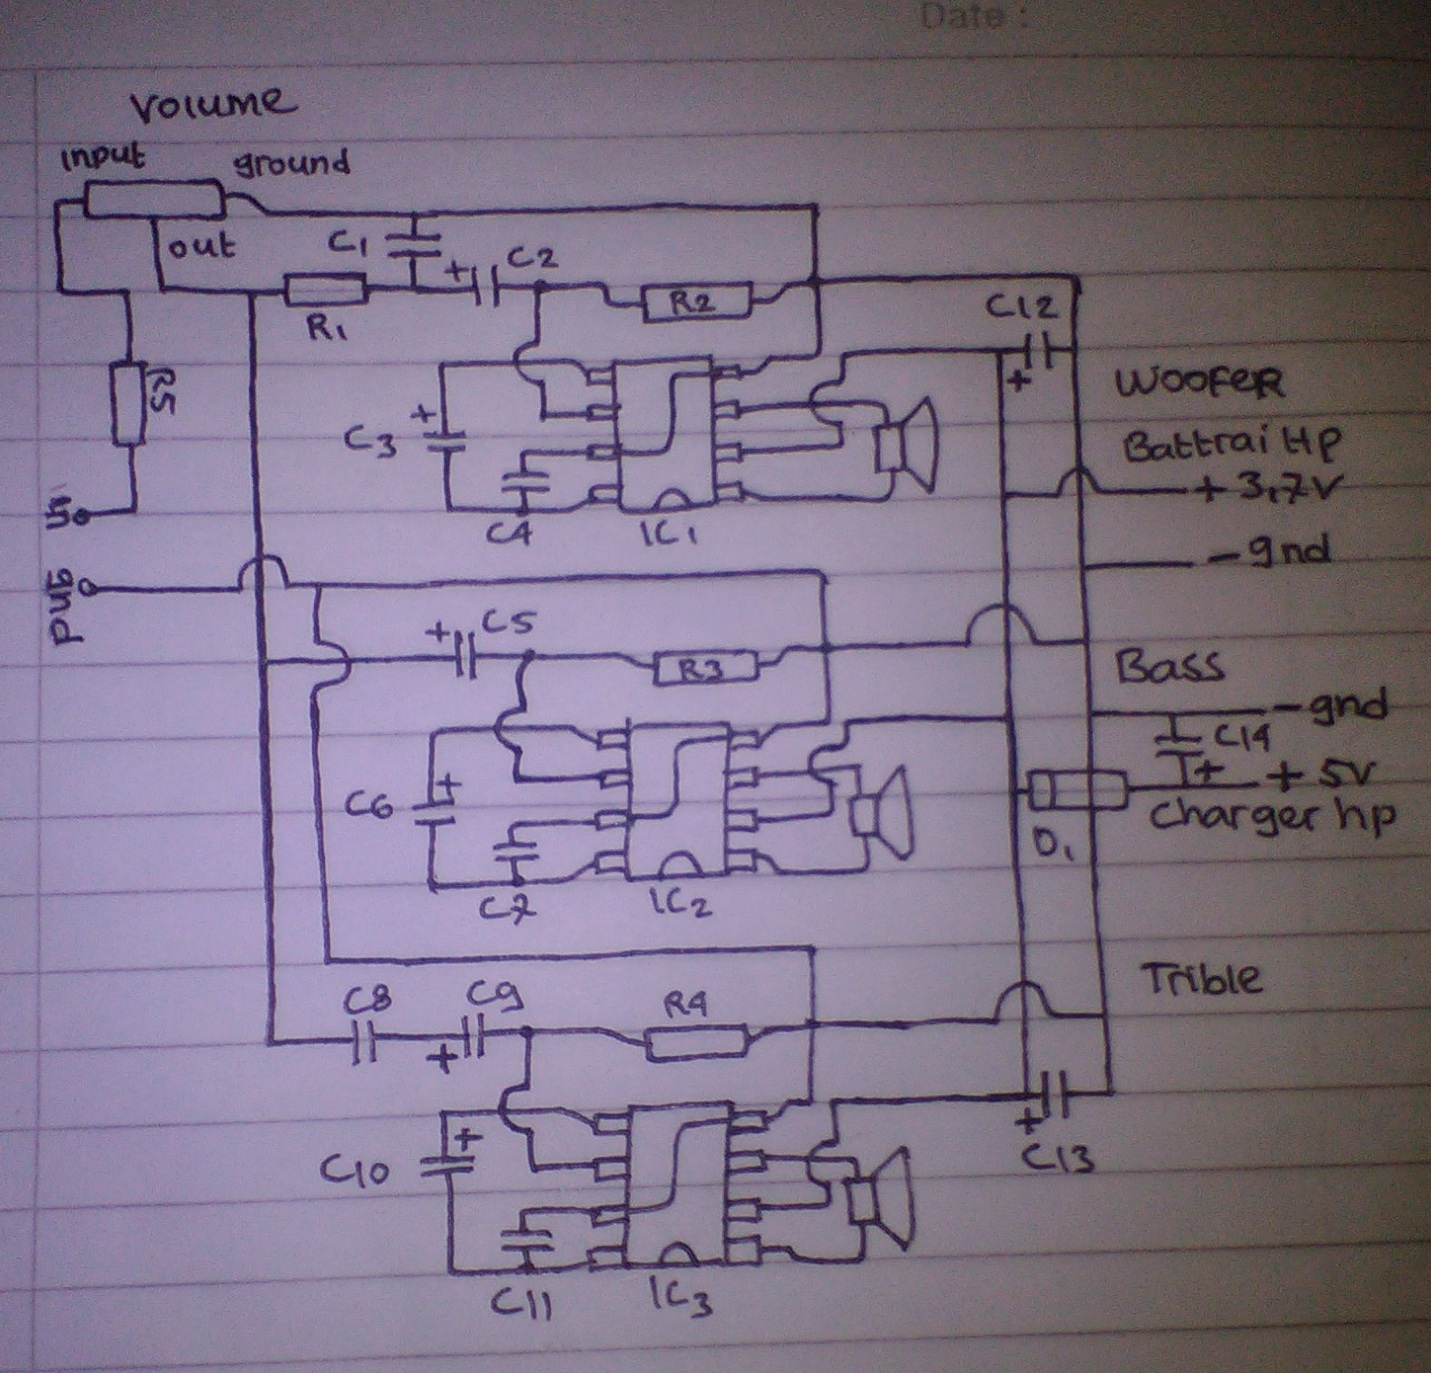 Date :
Volume
input ground
out
C1
+
C2
R1
R2
C12
+
R5
WOOFER
C3
+
Battrai HP
+ 3,7V
in
C4
IC1
- gnd
gnd
+
C5
R3
Bass
- gnd
C14
+
+ 5V
C6
+
Charger hp
D1
C7
IC2
Trible
C8
C9
+
R4
C10
+
+
C13
C11
IC3